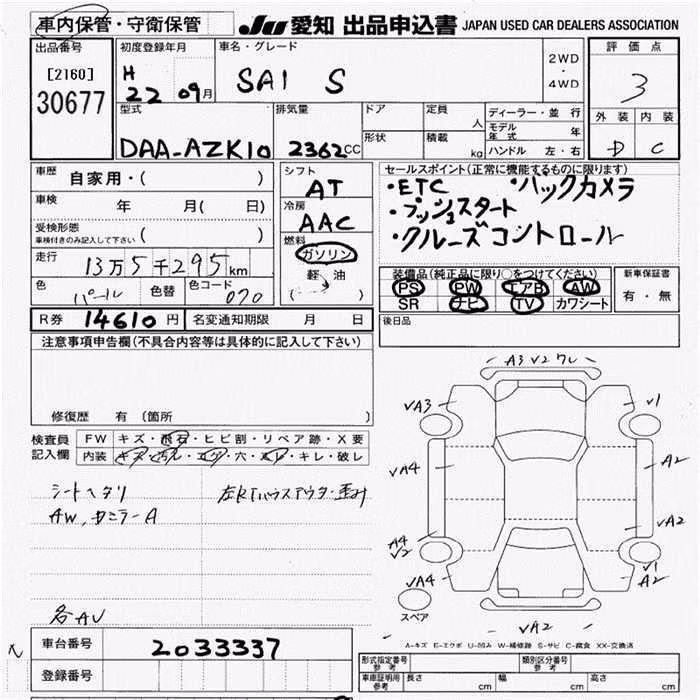 車内保管・守衛保管
JU 愛知 出品申込書 JAPAN USED CAR DEALERS ASSOCIATION
出品番号
[2160]
30677
初度登録年月
H 22 09月
車名・グレード
SAI S
2WD
・
4WD
評価点
3
外装 内装
D C
型式
DAA-AZK10
排気量
2362CC
ドア
形状
定員
人
積載
kg
ディーラー・並行
モデル年式 年
ハンドル 左・右
車歴 自家用・( )
車検 年 月( 日)
受検形態
車検付きのみ記入して下さい ( )
走行 13万5千295km
色 パール 色替 色コード 070
シフト
AT
冷房
AAC
燃料
ガソリン
軽油
( )
セールスポイント(正常に機能するものに限ります)
・ETC ・バックカメラ
・プッシュスタート
・クルーズコントロール
装備品(純正品に限り○をつけてください)
PS PW エアB AW
SR ナビ TV カワシート
新車保証書
有・無
R券 14610円 名変通知期限 月 日
後日品
注意事項申告欄(不具合内容等は具体的に記入して下さい)
修復歴 有 (箇所 )
検査員記入欄
FW キズ・飛石・ヒビ割・リペア跡・X要
内装 キズ・汚れ・コゲ・穴・スレ・キレ・破レ
シートヘタリ
AW、Dミラー A
各AU
A3 V2 ワレ
VA3
V1
VA4
A2
VA2
A4
V2
VA4
V1
A2
VA2
スペア
A-キズ E-エクボ U-凹み W-補修跡 S-サビ C-腐食 XX-交換済
車台番号 2033337
登録番号
形式指定番号 参考
類別区分番号 参考
車庫証明用 参考 長さ cm 幅 cm 高さ cm